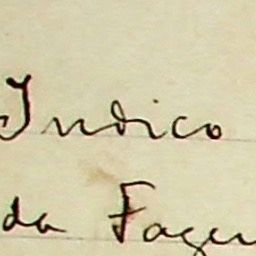 Indico
da Fagen